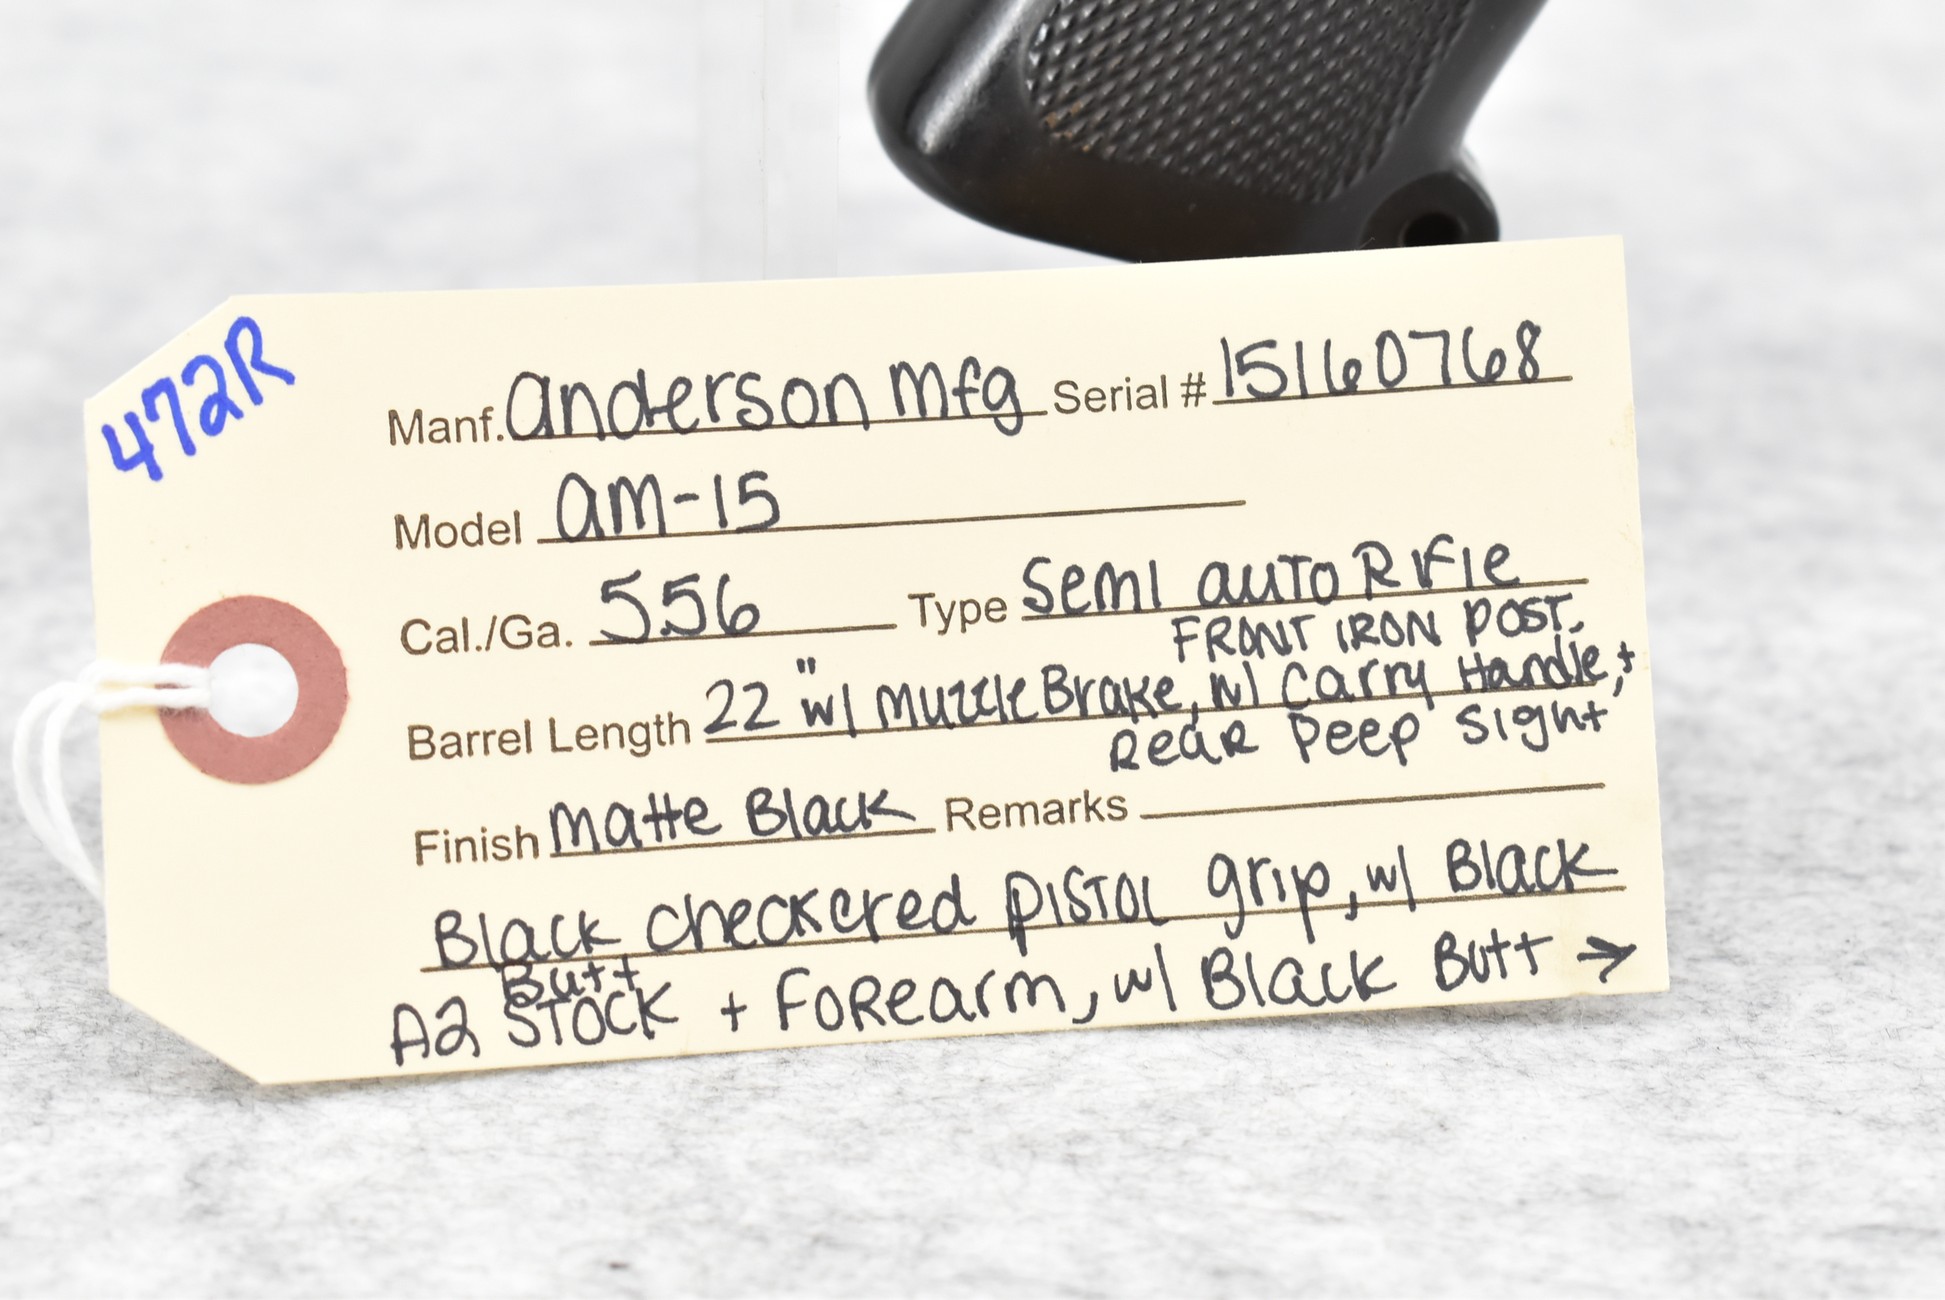 472R
Manf. anderson mfg Serial # 15160768
Model am-15
Cal./Ga. 5.56 Type Semi auto Rifle
FRONT IRON POST,
Barrel Length 22" w/ muzzle Brake, w/ Carry Handle, +
Rear Peep Sight
Finish matte Black Remarks
Black checkered pistol grip, w/ Black
Butt
A2 STOCK + Forearm, w/ Black Butt →